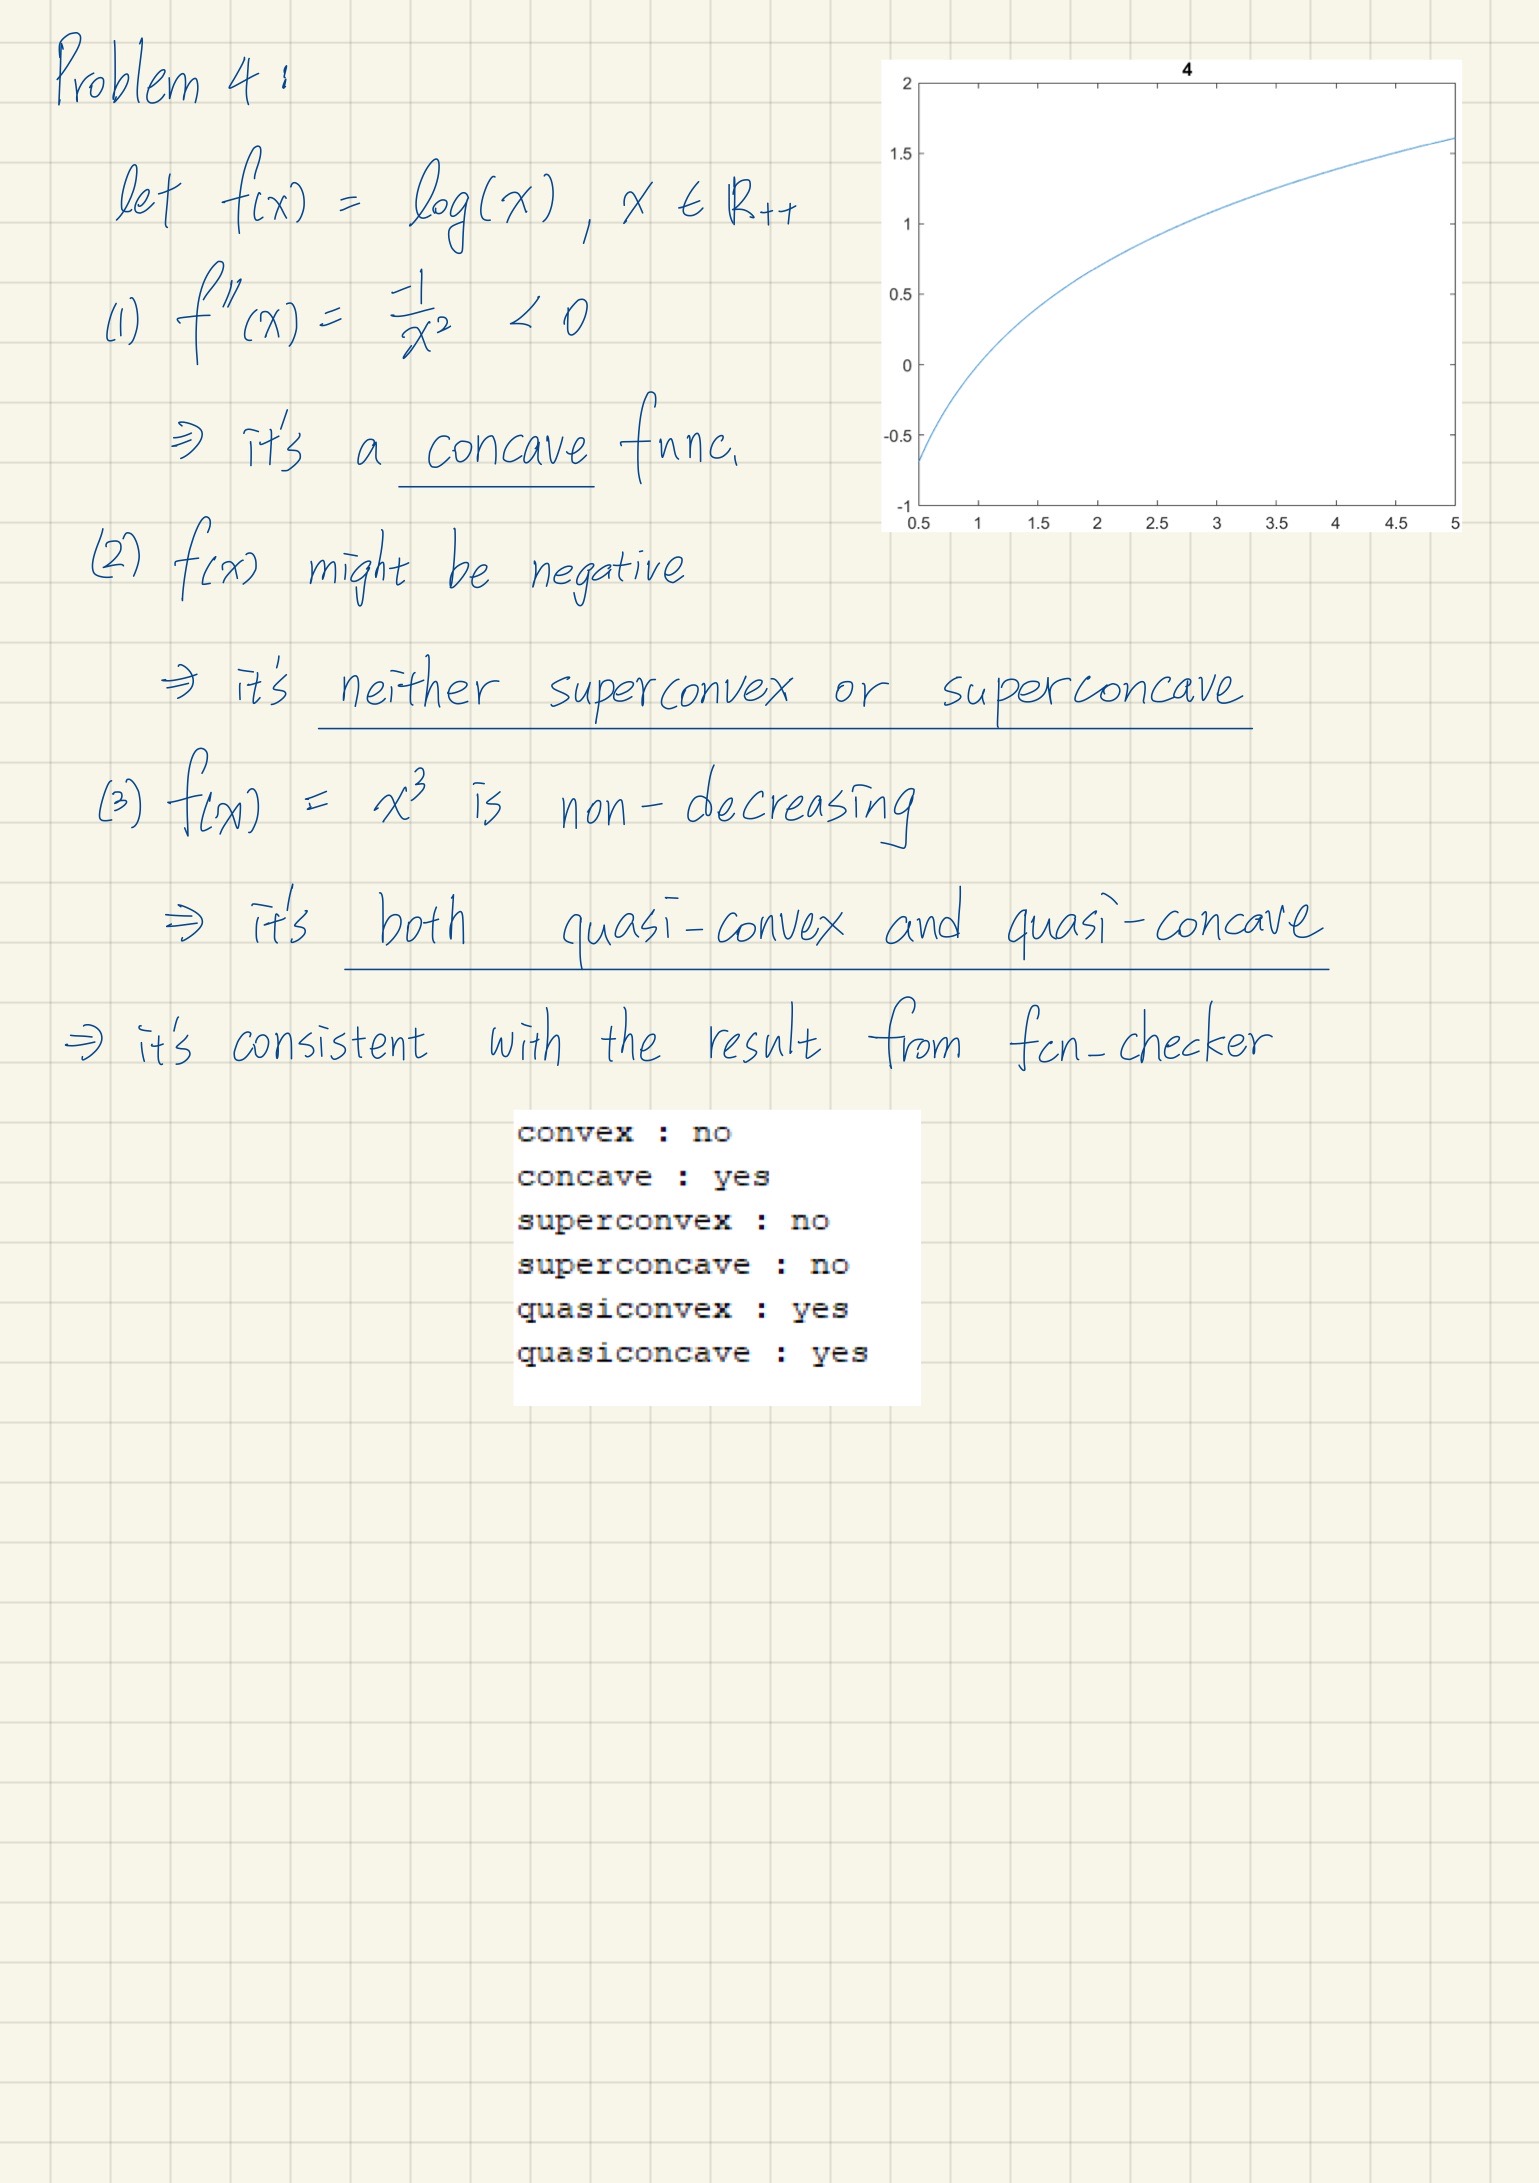 Problem 4 :
let f(x) = log(x) , x ∈ ℝ++
(1) f''(x) = -1/x² < 0
⇒ it's a concave func.
(2) f(x) might be negative
⇒ it's neither superconvex or superconcave
(3) f(x) = x³ is non-decreasing
⇒ it's both quasi-convex and quasi-concave
⇒ it's consistent with the result from fcn-checker
4
2
1.5
1
0.5
0
-0.5
-1
0.5 1 1.5 2 2.5 3 3.5 4 4.5 5
convex : no
concave : yes
superconvex : no
superconcave : no
quasiconvex : yes
quasiconcave : yes